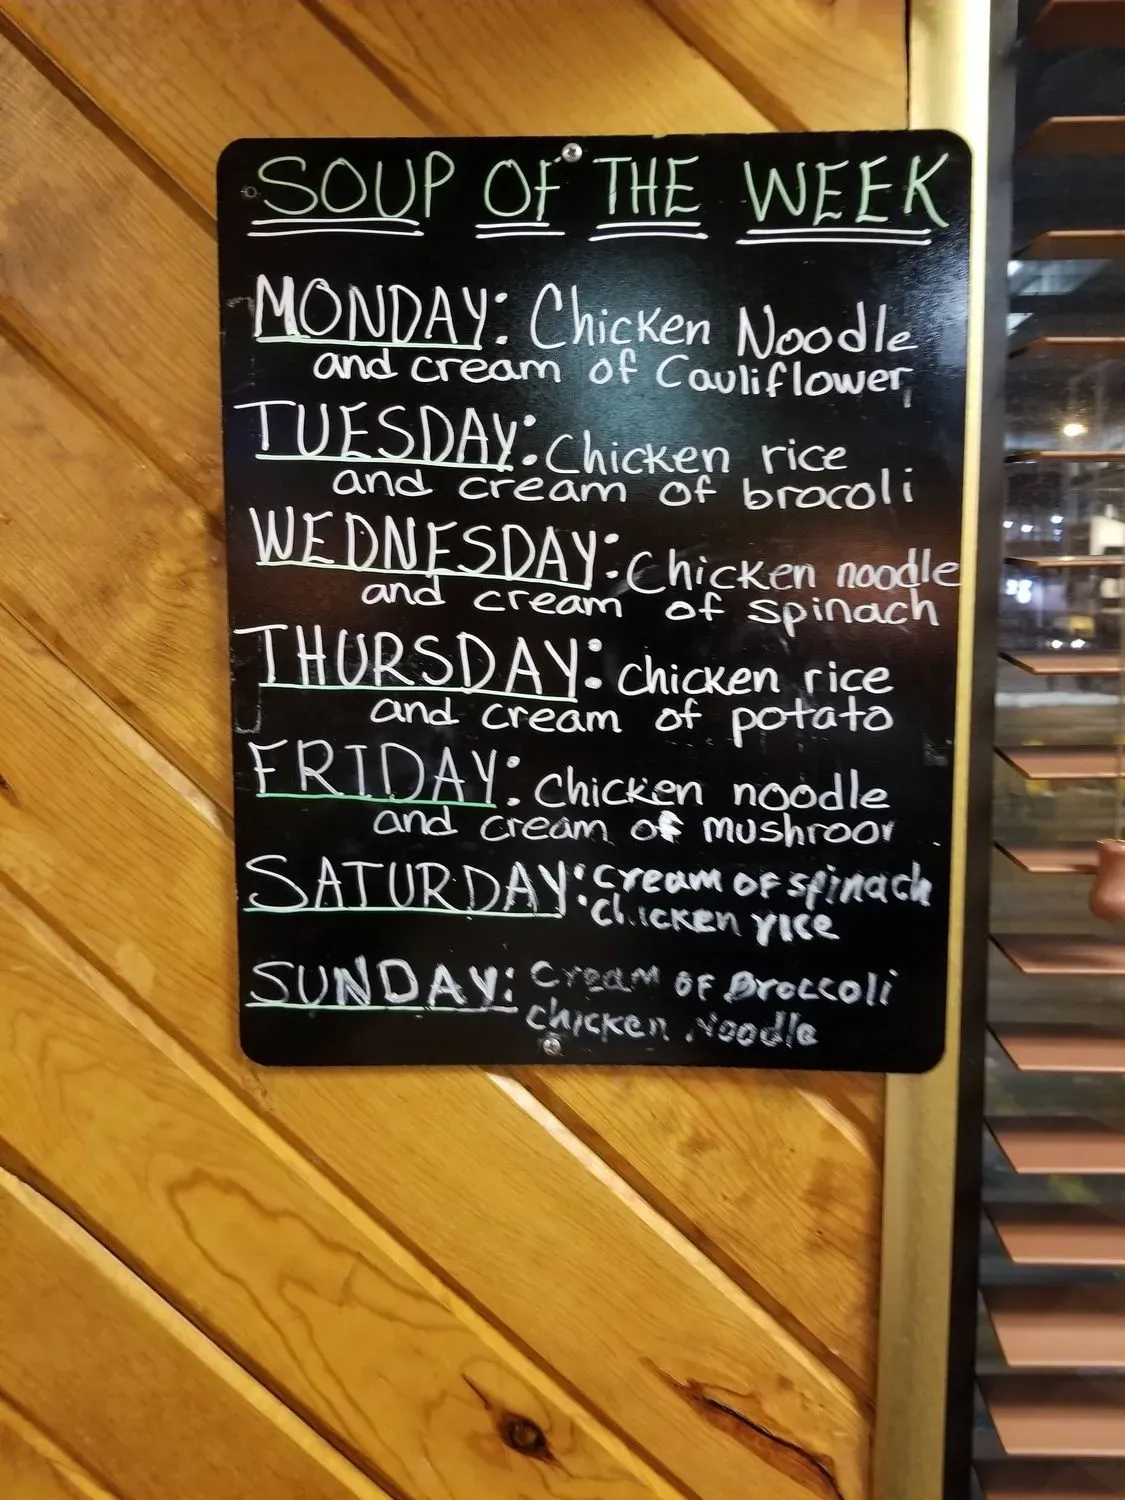 SOUP OF THE WEEK
MONDAY: Chicken Noodle
and cream of Cauliflower
TUESDAY: Chicken rice
and cream of brocoli
WEDNESDAY: Chicken noodle
and cream of spinach
THURSDAY: chicken rice
and cream of potato
FRIDAY: Chicken noodle
and cream of mushroor
SATURDAY: Cream of spinach
chicken rice
SUNDAY: Cream of Broccoli
chicken Noodle